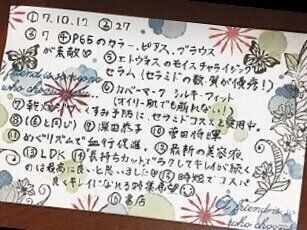 ①7.10.12 ②27
③7 ④P65のカラー、ピアス、ブラウス
が素敵♡ ⑤エトヴォスのモイスチャライジング
セラム(セラミドの数、質が優秀!)
⑥カバーマーク シルキーフィット
(オイリー肌でも崩れない
⑦乾燥 くすみ予防に、セラミドコスメと併用中。
⑧(⑥と同じ) ⑨深田恭子 ⑩菅田将暉
⑪めぐりズムで血行促進 ⑫最新の美容液
⑬LDK ⑭「長持ちカットでラクしてキレイが続く
のは最高に良いと思いました ⑮時短でコスパ
良くキレイになれる特集希望
⑯書店
A friend is someone
who chooses
A friend is
who chooses